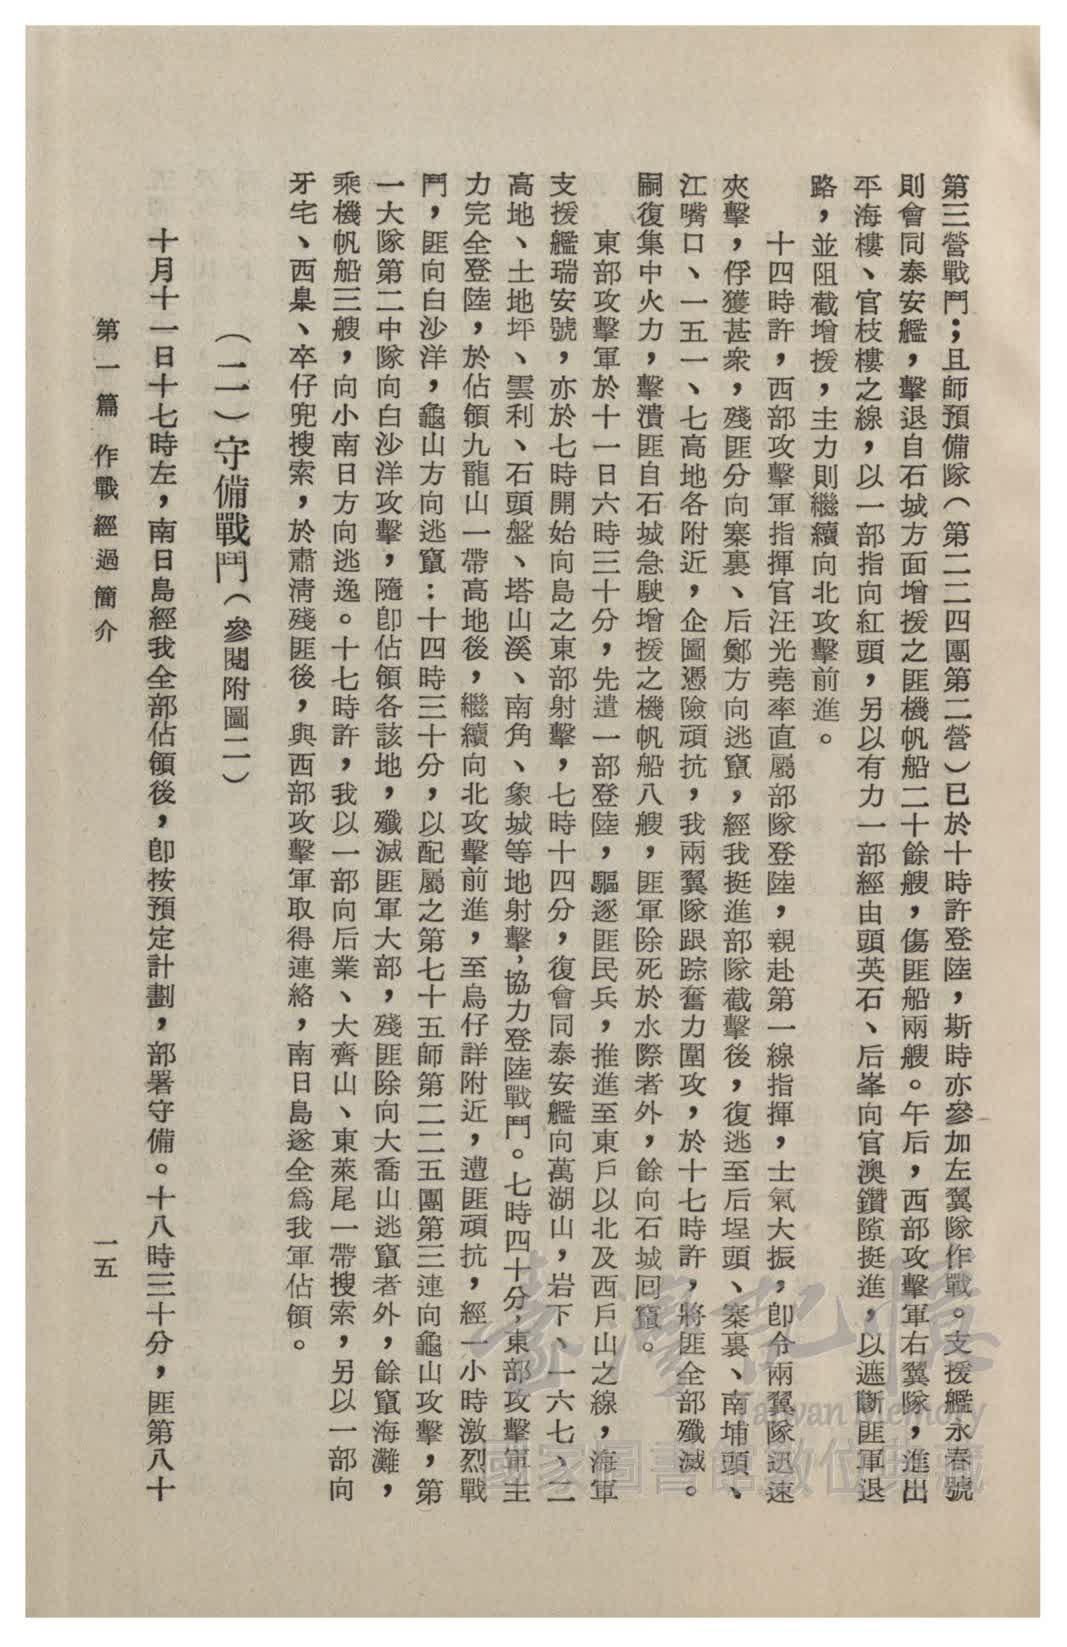 第三營戰鬥；且師預備隊（第二二四團第二營）已於十時許登陸，斯時亦參加左翼隊作戰。支援艦永春號
則會同泰安艦，擊退自石城方面增援之匪機帆船二十餘艘，傷匪船兩艘。午后，西部攻擊軍右翼隊，進出
平海樓、官枝樓之線，以一部指向紅頭，另以有力一部經由頭英石、后峯向官澳鑽隙挺進，以遮斷匪軍退
路，並阻截增援，主力則繼續向北攻擊前進。
十四時許，西部攻擊軍指揮官汪光堯率直屬部隊登陸，親赴第一線指揮，士氣大振，卽令兩翼隊迅速
夾擊，俘獲甚衆，殘匪分向寨裏、后鄭方向逃竄，經我挺進部隊截擊後，復逃至后埕頭、寨裏、南埔頭、
江嘴口、一五一、七高地各附近，企圖憑險頑抗，我兩翼隊跟踪奮力圍攻，於十七時許，將匪全部殲滅。
嗣復集中火力，擊潰匪自石城急駛增援之機帆船八艘，匪軍除死於水際者外，餘向石城回竄。
東部攻擊軍於十一日六時三十分，先遣一部登陸，驅逐匪民兵，推進至東戶以北及西戶山之線，海軍
支援艦瑞安號，亦於七時開始向島之東部射擊，七時十四分，復會同泰安艦向萬湖山，岩下、一六七、二
高地、土地坪、雲利、石頭盤、塔山溪、南角、象城等地射擊，協力登陸戰鬥。七時四十分，東部攻擊軍主
力完全登陸，於佔領九龍山一帶高地後，繼續向北攻擊前進，至烏仔詳附近，遭匪頑抗，經一小時激烈戰
鬥，匪向白沙洋，龜山方向逃竄：十四時三十分，以配屬之第七十五師第二二五團第三連向龜山攻擊，第
一大隊第二中隊向白沙洋攻擊，隨卽佔領各該地，殲滅匪軍大部，殘匪除向大喬山逃竄者外，餘竄海灘，
乘機帆船三艘，向小南日方向逃逸。十七時許，我以一部向后業、大齊山、東萊尾一帶搜索，另以一部向
牙宅、西臬、卒仔兜搜索，於肅淸殘匪後，與西部攻擊軍取得連絡，南日島遂全爲我軍佔領。
（二）守備戰鬥（參閱附圖二）
十月十一日十七時左，南日島經我全部佔領後，卽按預定計劃，部署守備。十八時三十分，匪第八十
第一篇 作戰經過簡介
一五
臺灣記憶
Taiwan Memory
國家圖書館數位典藏